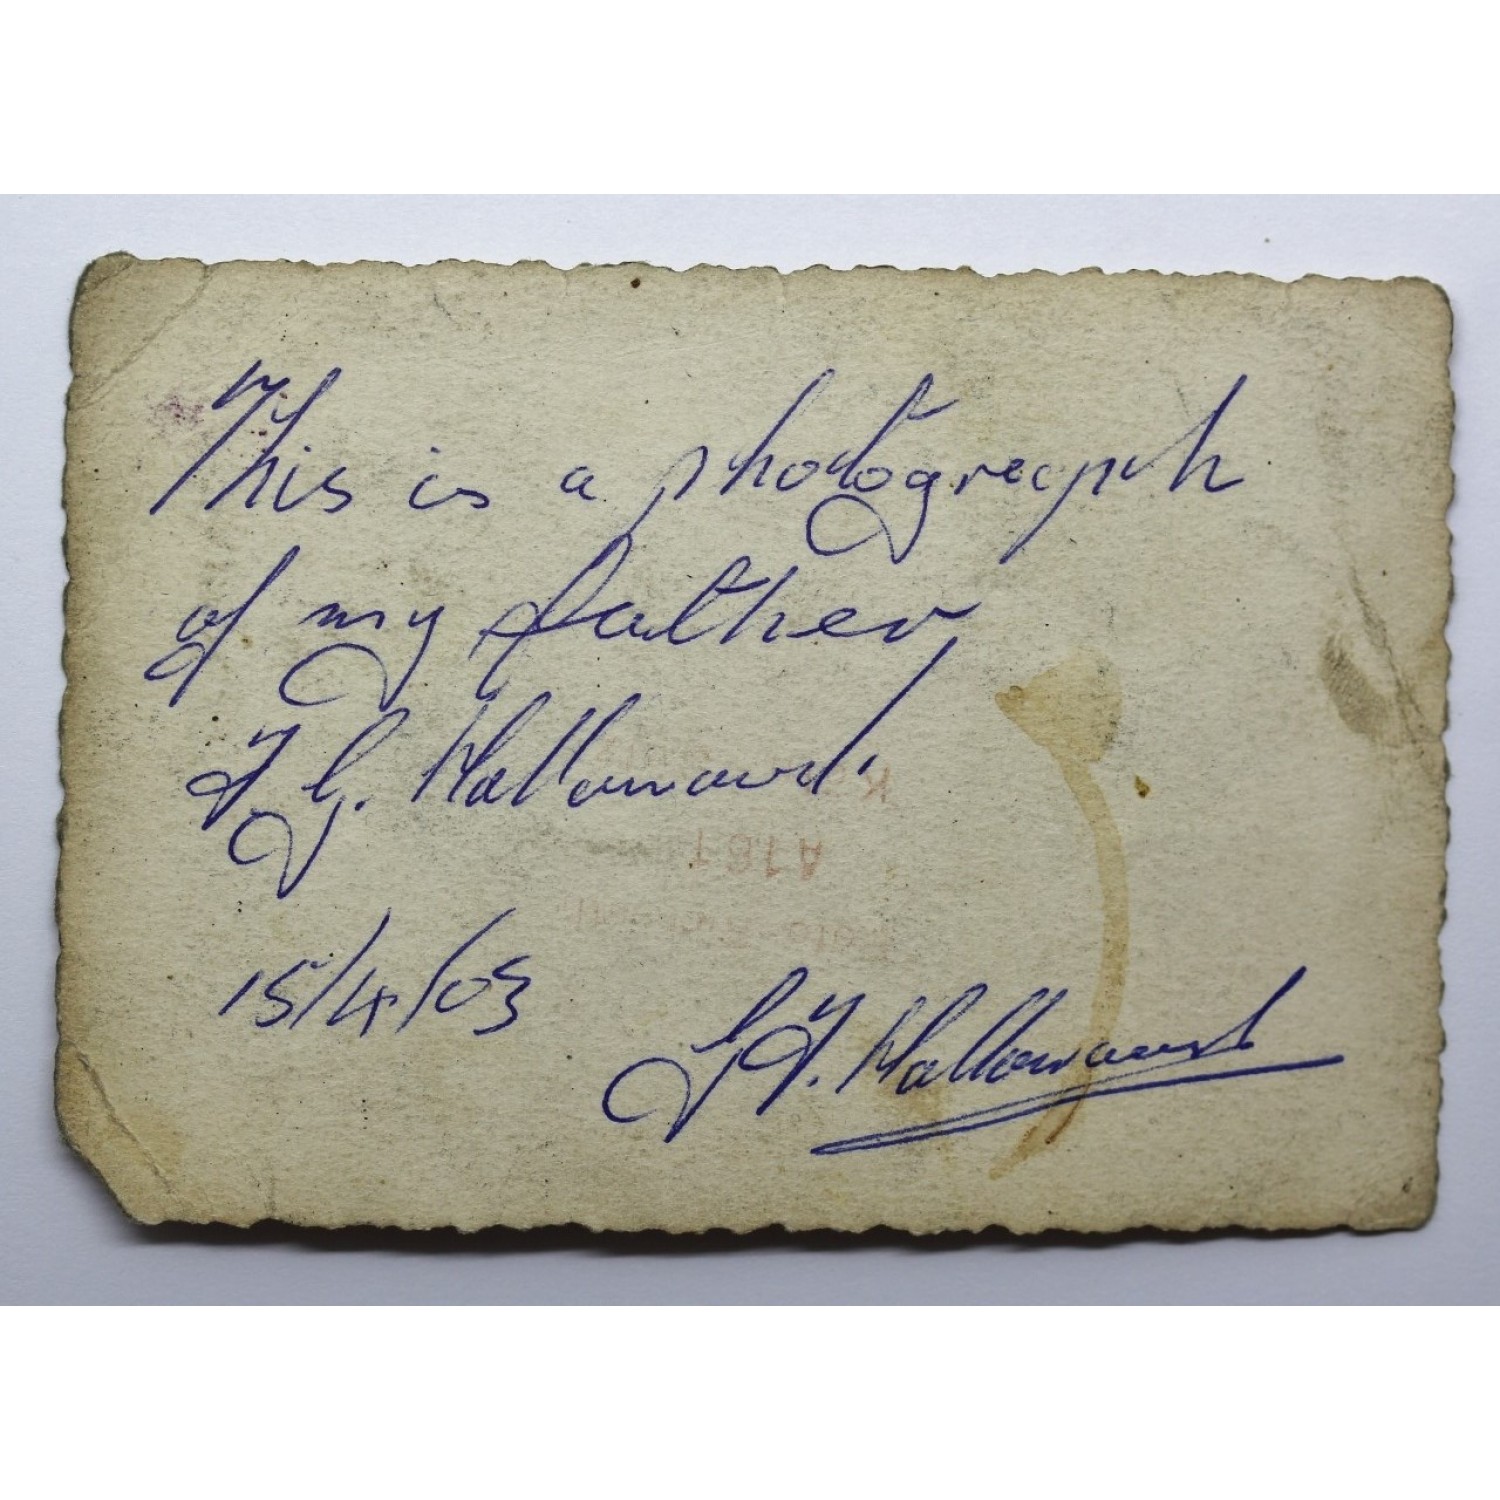 This is a photograph
of my father,
J G. Hallowand.
15/4/03
G J. Hallowand
A161